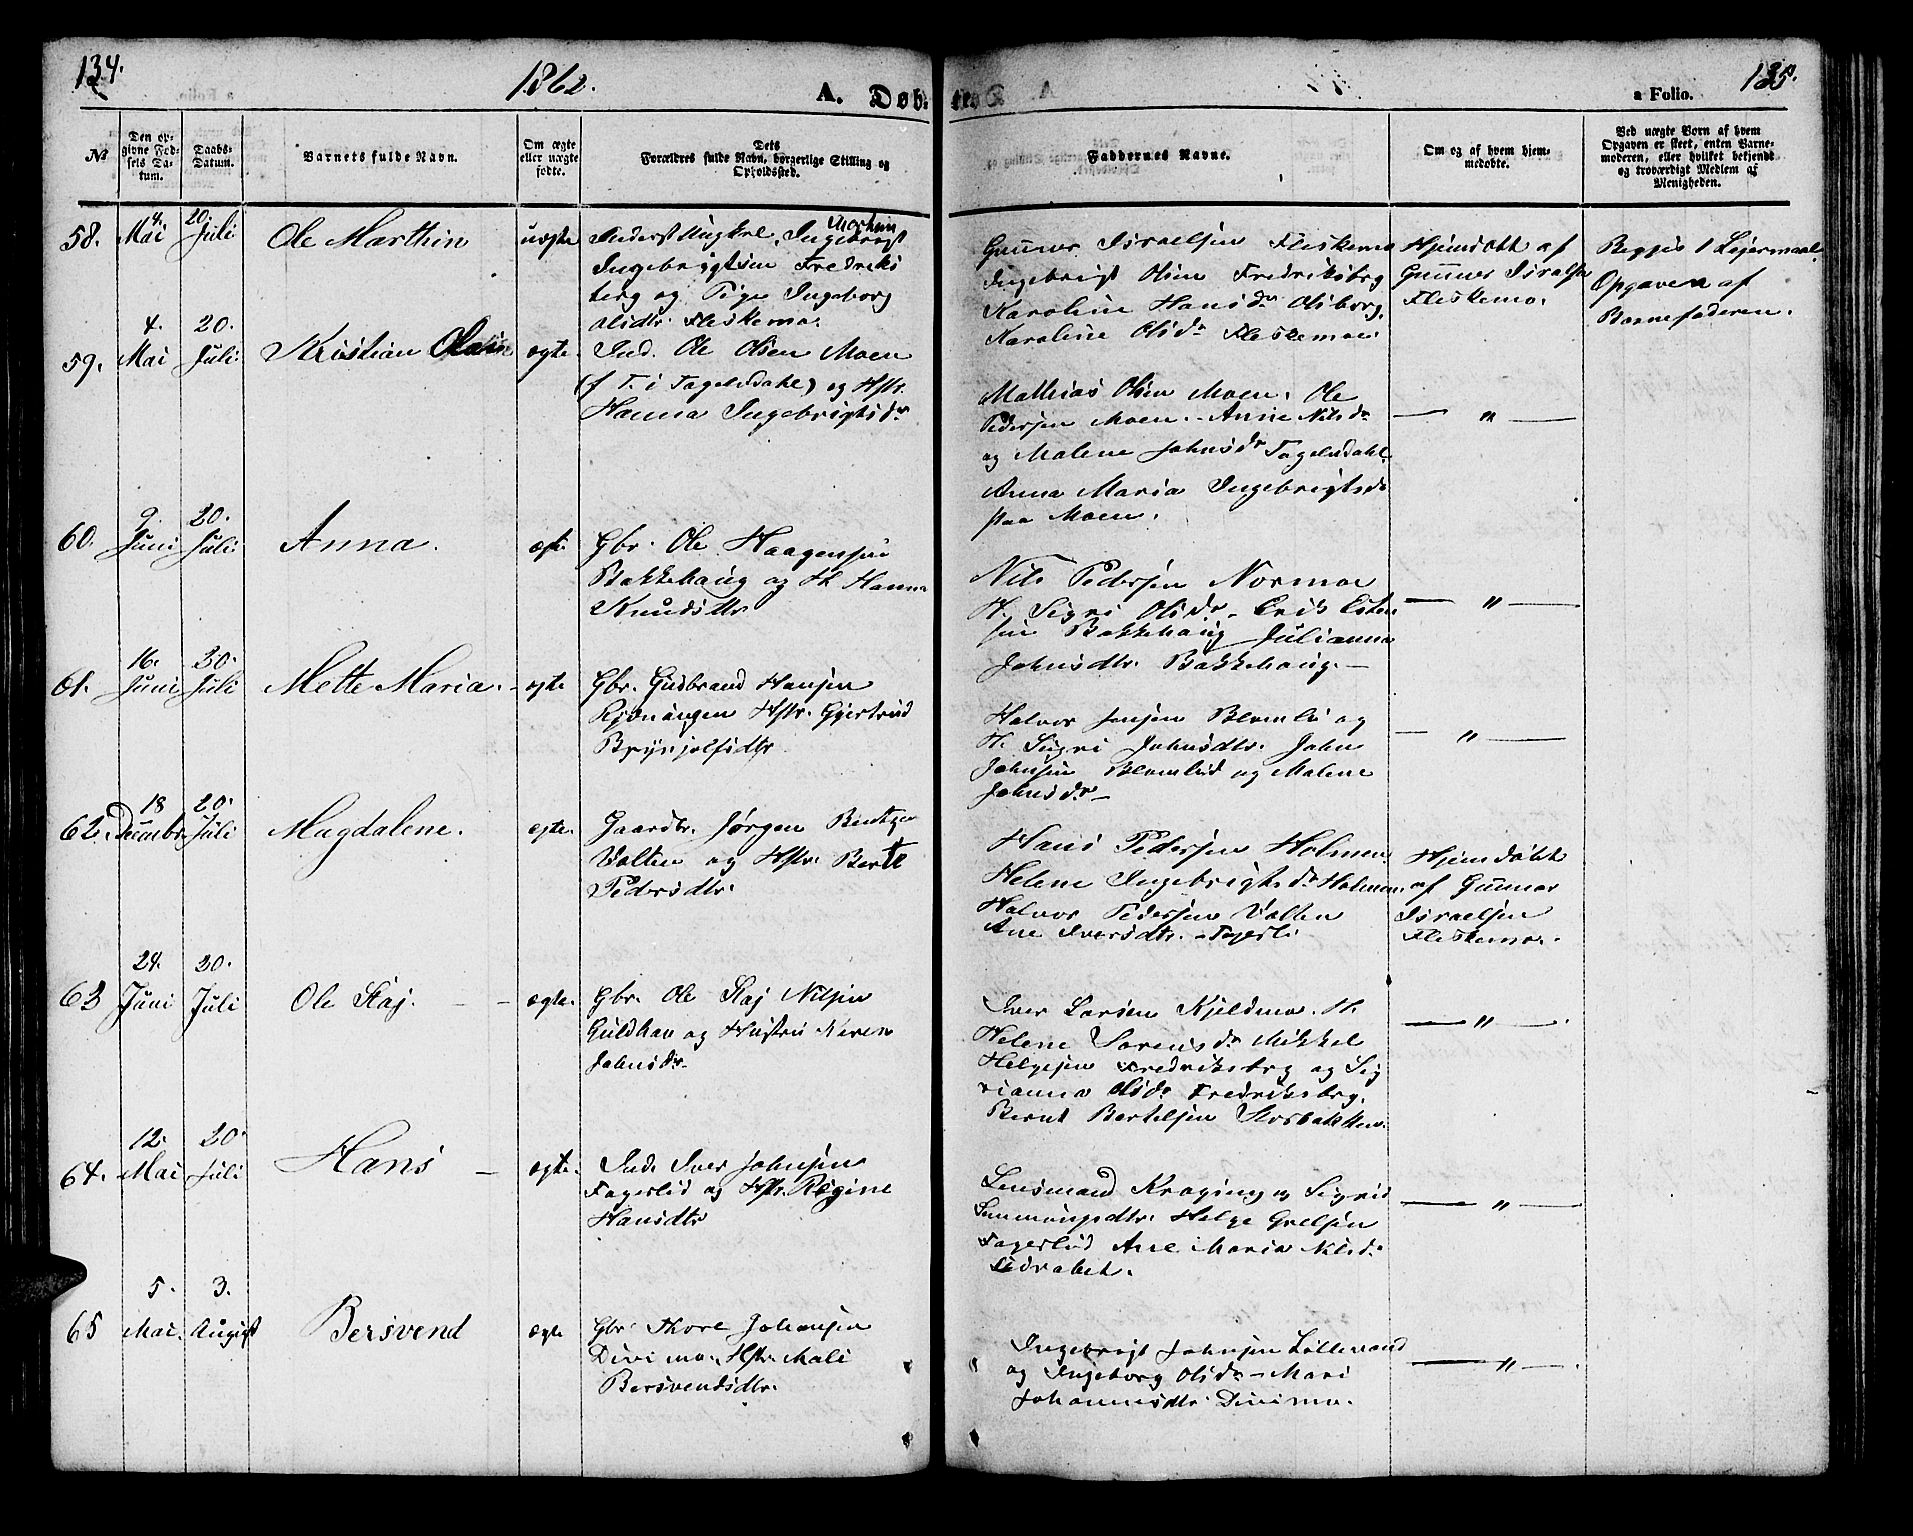 134.
1862.
A. Døb-
te.
a Folio.
135.
No
Den op-
givne Fød-
sels Da-
tum.
Daabs-
Datum.
Barnets fulde Navn.
Om ægte
eller uægte
fødte.
Dets
Forældres fulde Navn, borgerlige Stilling og
Opholdssted.
Faddernes Navne.
Om og af hvem hjem-
medøbte.
Ved uægte Børn af hvem
Opgaven er skeet, enten Barne-
moderen, eller hvilket bekjendt
og troværdigt Medlem af
Menigheden.
58.
4.
Mai
20.
Juli
Ole Marthin
uægte
Inderst Ungkrl. Ingebrigt Martin
Ingebrigtsen Fredriks
berg og Pige Ingeborg
Olsdtr. Fleskemo.
Gunner Israelsen Fleskemo
Ingebrigt Olsen Fredriksbrg
Karoline Hansdr Olsborg.
Karoline Olsdr Fleskemo.
Hjemdøbt af
Gunner Israelsen
Fleskemo.
Begges 1 Lejermaal.
Opgaven af
Barnefaderen.
59.
4.
Mai
20.
Juli
Kristian Olaus
ægte
Ind. Ole Olsen Moen
(f. T. i Tagelvdahl) og Hstr.
Hanna Ingebrigtsdr
Mathias Olsen Moen. Ole
Pedersen Moen. Anne Nilsdr
og Malene Johnsdr Tagelvdahl.
Anna Maria Ingebrigtsdr
paa Moen.
— " —
60.
9.
Juni
20.
Juli.
Anna.
ægte.
Gbr. Ole Haagensen
Bakkehaug og H. Hanna
Knudsdtr
Nils Pedersen Normo
H. Sigri Olsdr – Erik Esten
sen Bakkehaug Julianna
Johnsdtr. Bakkehaug. —
— " —
61.
16.
Juni
20.
Juli
Mette Maria.
ægte
Gbr. Gudbrand Hansen
Kjønungen Hstr. Gjertrud
Brynjolfsdtr.
Halvor Jensen Blomli og
H. Sigri Johnsdtr. John
Johnsen Blomlid og Malene
Johnsdr —
— " —
62.
18
Decembr
20.
Juli
Magdalene.
ægte.
Gaardbr. Jørgen
Valten og Hstr. Berte
Pedersdtr.
Hans Pedersen Holmen
Helene Ingebrigtsdr Holmen.
Halvor Pedersen Valten
Ane Iversdtr. Fagerli
Hjemdøbt
af Gunnar
Israelsen
Fleskemo.
63
24.
Juni
20.
Juli
Ole Staj.
ægte.
Gbr. Ole Staj Nilsen
Guldhav og Hustru Maren
Johnsdr.
Iver Larsen Kjeldmo. H.
Helene Sørensdr Mikkel
Helgesen Fredriksbrg og Sig
rianna Olsdr Fredriksbrg.
Bernt Bertelsen
— " —
64.
12.
Mai
20.
Juli
Hans
ægte.
Ind. Iver Johnsen
Fagerlid og Hstr. Regine
Hansdtr
Lensmand Kroging og Sigrid
Simmonsdtr. Helge Grelsen
Fagerlid Ane Maria Nilsdr
— " —
65
5.
Mai.
3.
August
Bersvend
ægte
Gbr. Thore Johansen
Divimo. Hstr. Mali
Bersvendsdtr.
Ingebrigt Johnsen Lillevand
og Ingeborg Olsdr – Mari
Johannesdtr. Divimo.
— " —